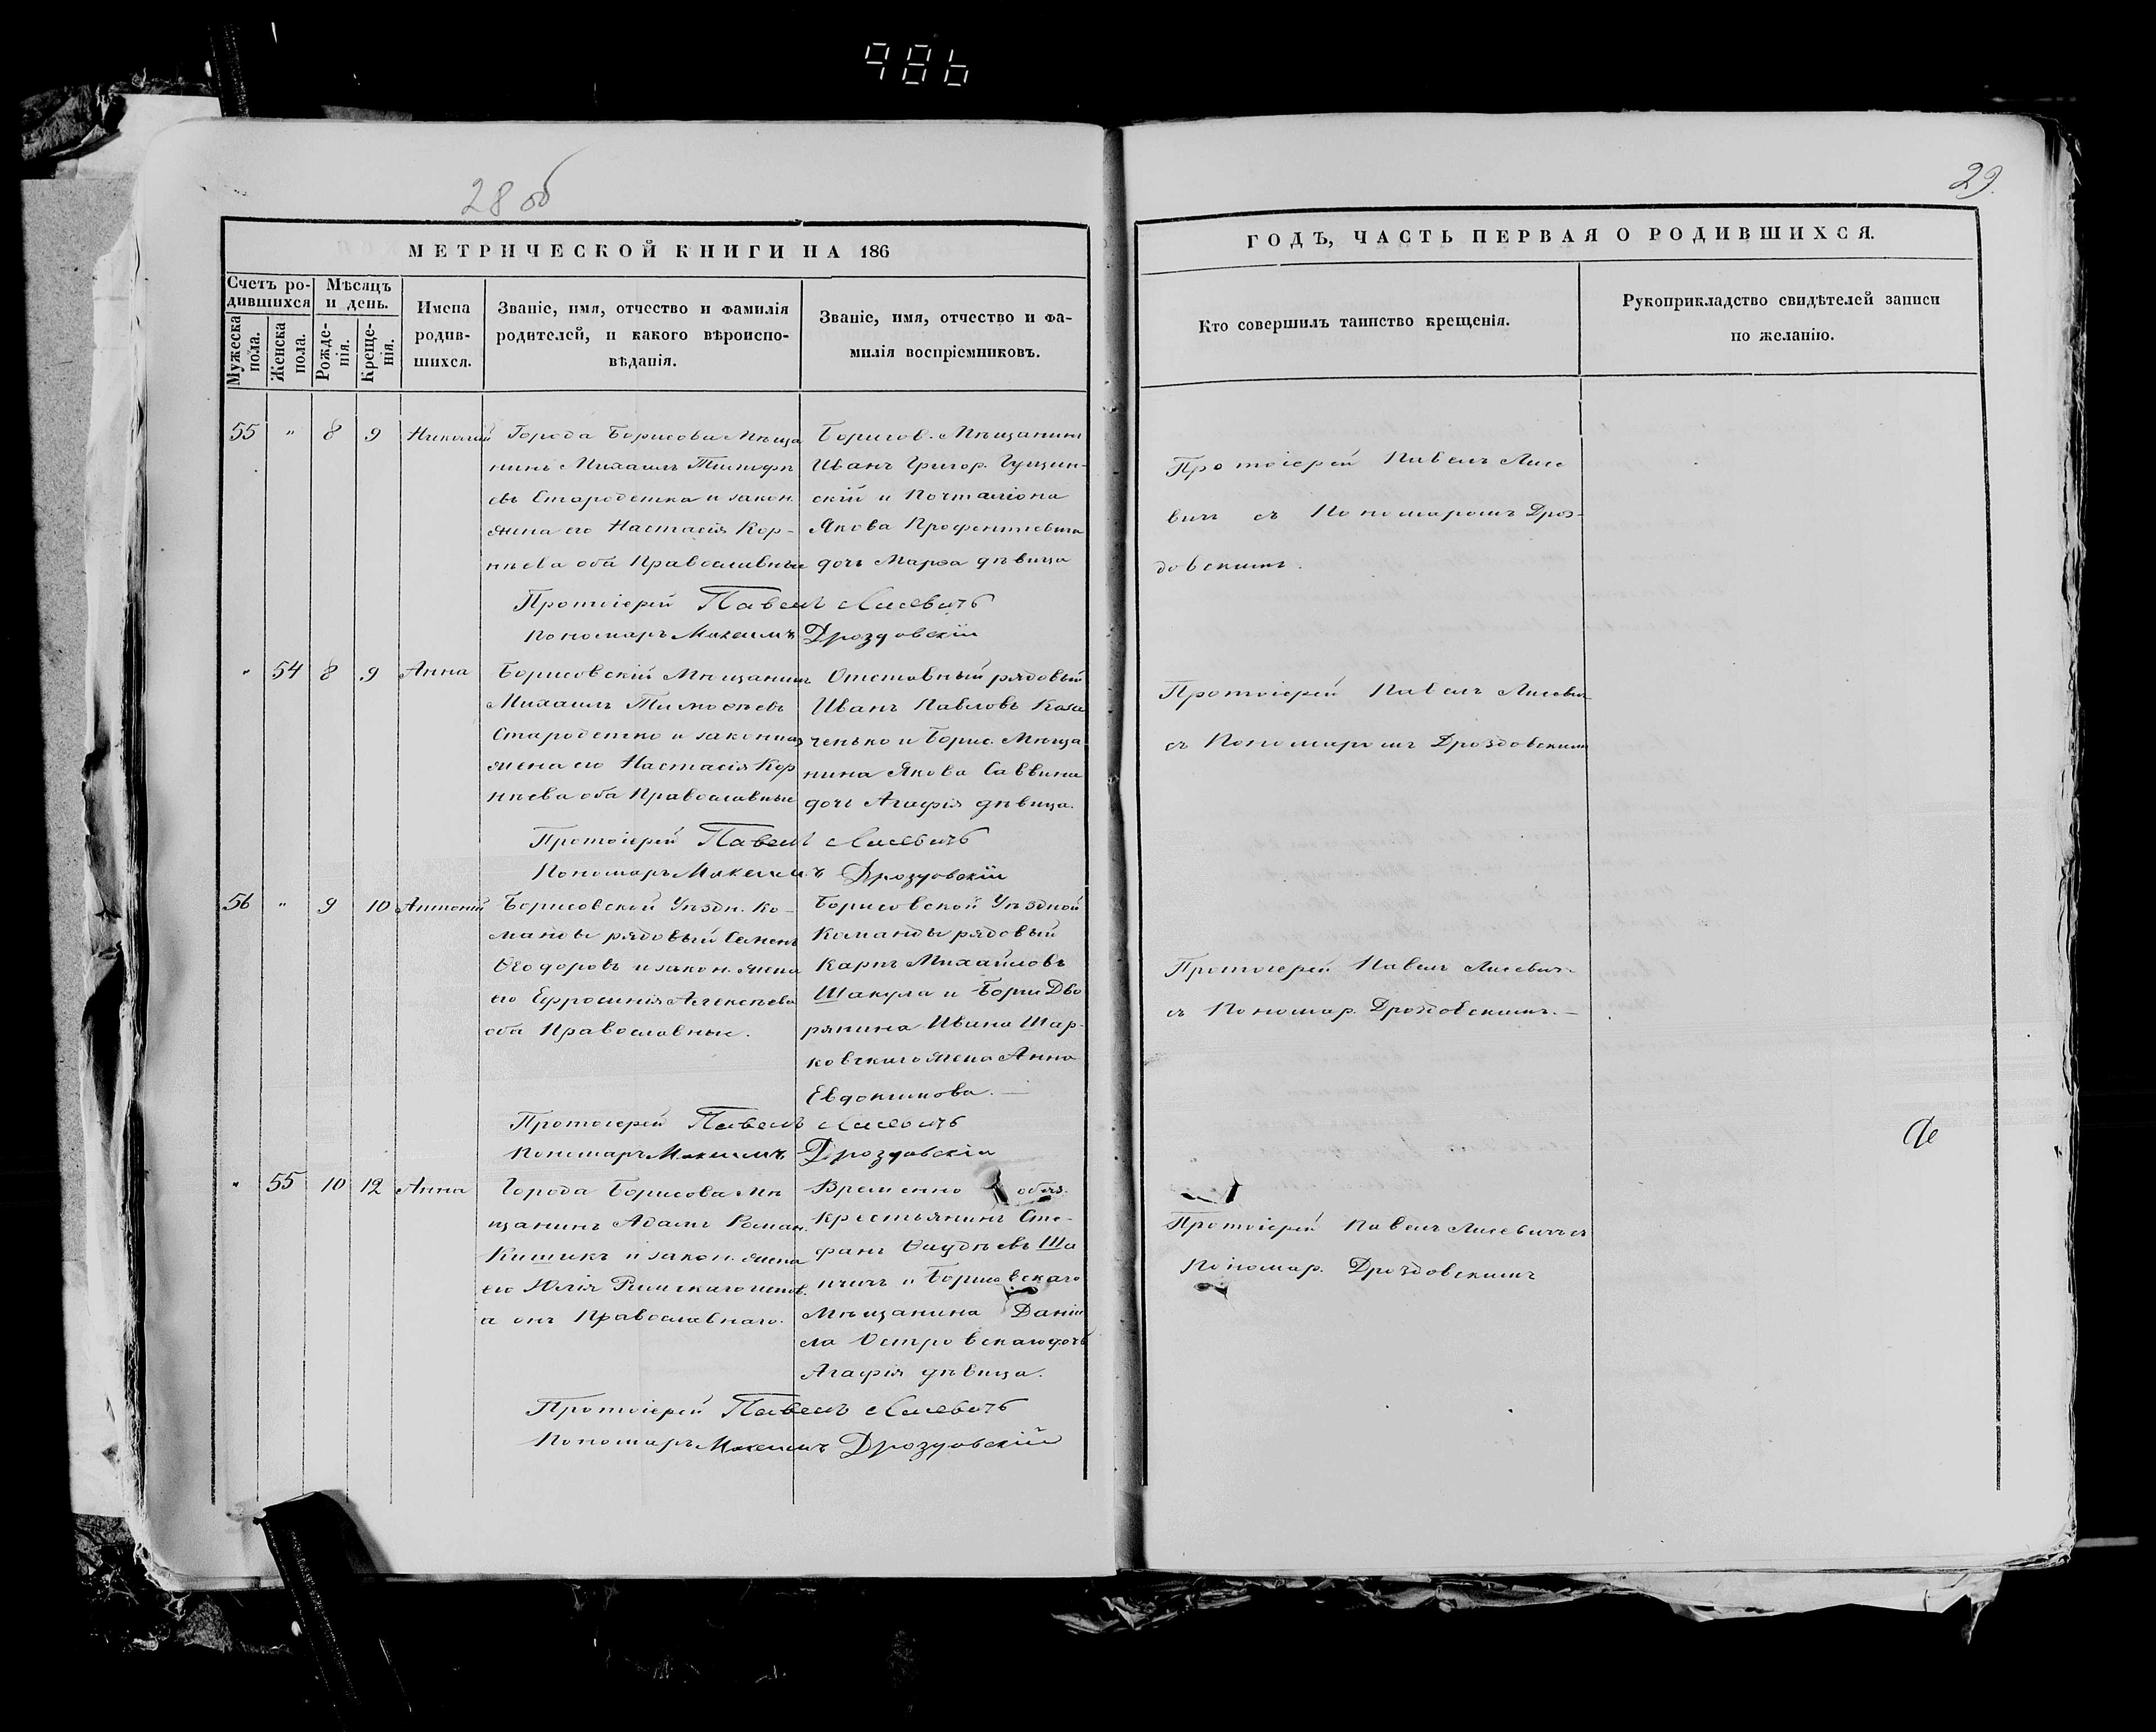 986
28 об
29.
МЕТРИЧЕСКОЙ КНИГИ НА 186
Счетъ ро-
дившихся
Мужеска
пола.
Женска
пола.
Мѣсяцъ
и день.
Рожде-
нія.
Креще-
нія.
Имена
родив-
шихся.
Званіе, имя, отчество и фамилія
родителей, и какого вѣроиспо-
вѣданія.
Званіе, имя, отчество и фа-
милія воспріемниковъ.
ГОДЪ, ЧАСТЬ ПЕРВАЯ О РОДИВШИХСЯ.
Кто совершилъ таинство крещенія.
Рукоприкладство свидѣтелей записи
по желанію.
55 " 8 9 Николай
Города Борисова Мѣща
нинъ Михаилъ Тимофѣ
евъ Стародетка и закон.
жена его Настасія Кор-
нѣева оба Православные
Борисов. Мѣщанинъ
Иванъ Григор. Гущин-
скій и Почталіона
Якова
дочь Марѳа дѣвица
Протоіерей Павелъ Лисе
вичъ съ Пономаромъ Дроз-
довскимъ.
Протоіерей Павелъ Лисевичъ
Пономаръ Максимъ Дроздовскій
" 54 8 9 Анна
Борисовскій Мѣщанинъ
Михаилъ Тимоѳѣевъ
Стародетко и законная
жена его Настасія Кор
нѣева оба Православные
Отставный рядовый
Иванъ Павловъ Каза
ченько и Борис. Мѣща
нина Якова Саввина
дочь Агафія дѣвица.
Протоіерей Павелъ Лисевичъ
съ Пономаромъ Дроздовскимъ
Протоіерей Павелъ Лисевичъ
Пономаръ Максимъ Дроздовскій
56 " 9 10 Антоній
Борисовской Уѣздн. Ко-
манды рядовый Семенъ
Ѳеодоровъ и закон. жена
его Ефросинія Алексѣева
оба Православные.
Борисовской Уѣздной
Команды рядовый
Карпъ Михайловъ
Шакула и Борис Дво
рянина Ивана Шар-
ковскаго жена Анна
Евдокимова. —
Протоіерей Павелъ Лисевичъ
съ Пономар. Дроздовскимъ. —
Протоіерей Павелъ Лисевичъ
Пономаръ Максимъ Дроздовскій
" 55 10 12 Анна
Города Борисова Мѣ
щанинъ Адамъ Роман.
Кишикъ и закон. жена
его Юлія Римскаго испов.
а онъ Православнаго.
Временно обяз.
крестьянинъ Сте-
фанъ Ша
и Борисовскаго
Мѣщанина Даніи
ла Островскаго дочь
Агафія дѣвица.
Протоіерей Павелъ Лисевичъ съ
Пономар. Дроздовскимъ
Протоіерей Павелъ Лисевичъ
Пономаръ Максимъ Дроздовскій